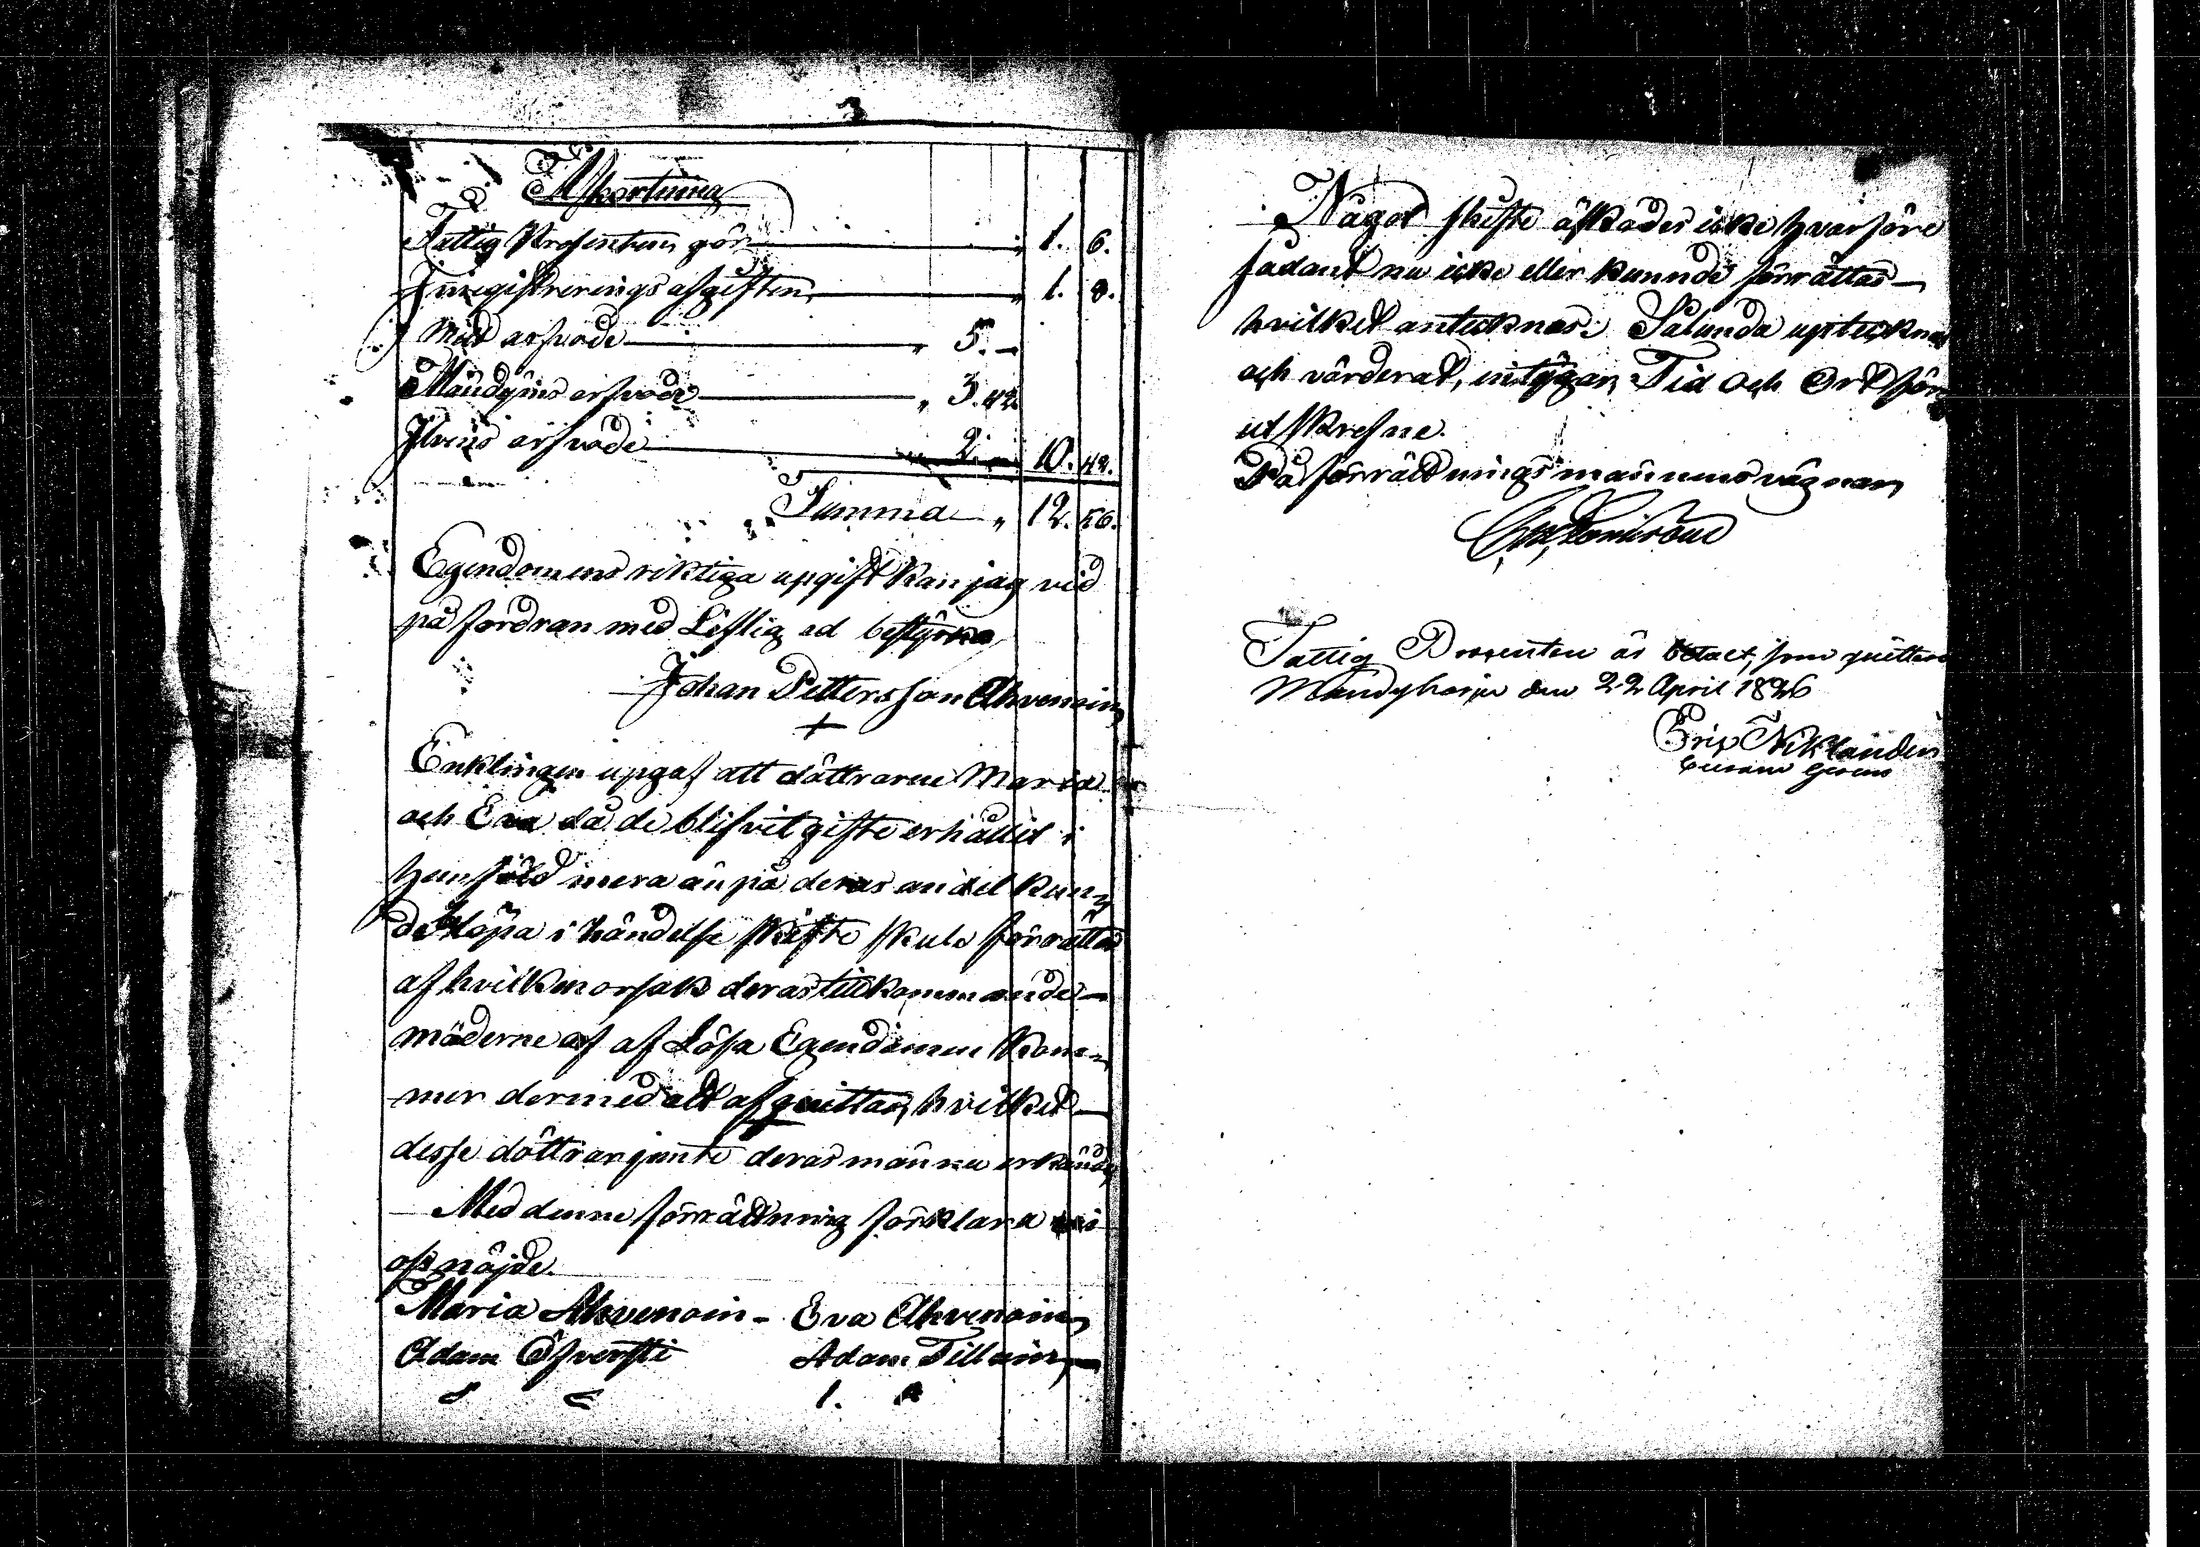 3
Afkortning
Fattig Prosenten gör " 1. 6.
Inregistrerings afgiften " 1. 8.
Mitt arfvode " 5. —
Mäudynis arfvode " 3. 42
arfvode 2. — 10. 42.
Summa " 12. 56.
Egendomens riktiga upgift kan jag vid
på fordran med Liflig ed bestyrka
Johan Pettersson Ahvenoin
+
Enklingen upgaf att döttrarne Maria
och Eva då de blifvit gifte erhållit i
hemföld mera än på deras andel kun
de löpa i händelse skifte skule förrättas
af hvilken orsak deras tillkommande
möderne arf af Lösa Egendomen kom-
mer dermed alt afquittas, hvilket
desse döttrar jemte deras män nu erkände
Med denne förrättning förklara vi
oss nöjde.
Maria Ahvenoin - Eva Ahvenoin
Adam Öfversti Adam Tillain
Något skifte äskades icke hvarföre
sådant nu icke eller kunnde förrättas
hvilket antecknas. Sålunda uptecknat
och värderat, intygar, Tid och Ort för
ut skrefne.
På förrättnings männens vägnar
Fattig Procenten är betalt, som quitteras
Mändyharju den 22 April 1826
Eric Niklander